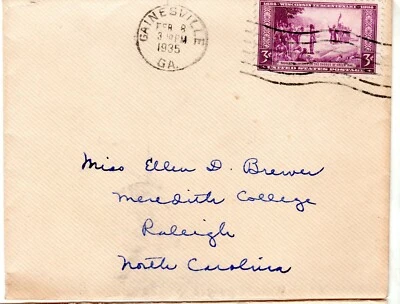 GAINESVILLE
FEB 8
3 PM
1935
GA.
1634 · WISCONSIN TERCENTENARY · 1934
3¢ 3¢
UNITED STATES POSTAGE
Miss Ellen D. Brewer
Meredith College
Raleigh
North Carolina